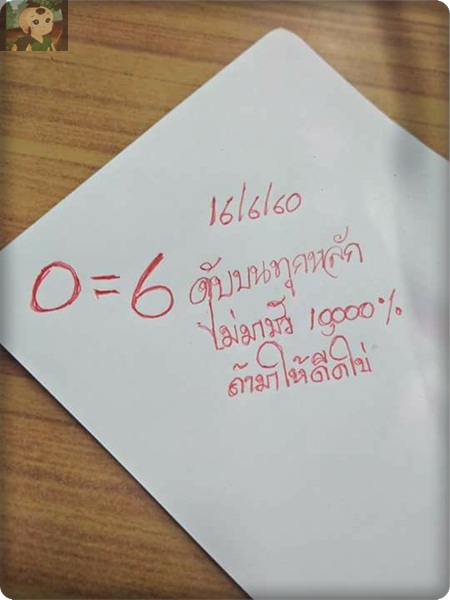 16/6/60
0=6 ดับบนทุกหลัก
ไม่มาชัว 10000%
ถ้ามาให้ดีดไข่